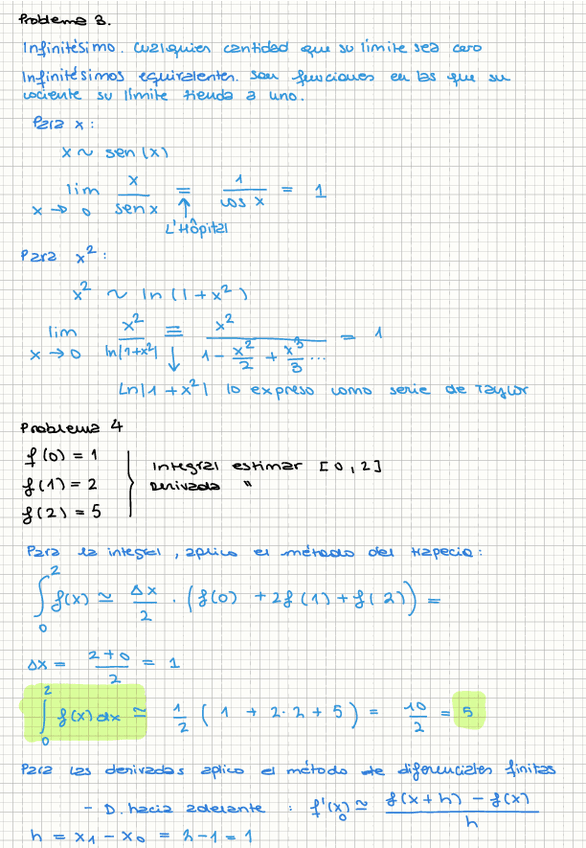 Problema 3.
Infinitésimo. Cualquier cantidad que su límite sea cero
Infinitésimos equivalentes. Son funciones en las que su
cociente su límite tienda a uno.
Para x:
x ~ sen(x)
lim x→0 x/sen x = 1/cos x = 1
L'Hôpital
Para x²:
x² ~ ln(1+x²)
lim x→0 x²/ln|1+x²| = x²/(1 - x²/2 + x³/3 ...) = 1
Ln|1+x²| lo expreso como serie de Taylor
Problema 4
f(0) = 1
f(1) = 2 Integral estimar [0,2]
f(2) = 5 Derivada "
Para la integral, aplico el método del trapecio:
∫₀² f(x) ≃ Δx/2 · (f(0) + 2f(1) + f(2)) =
Δx = (2+0)/2 = 1
∫₀² f(x) dx ≃ 1/2 (1 + 2·2 + 5) = 10/2 = 5
Para las derivadas aplico el método de diferenciales finitas
- D. hacia adelante : f'(x)₀ ≃ (f(x+h) - f(x))/h
h = x₁ - x₀ = 2-1 = 1